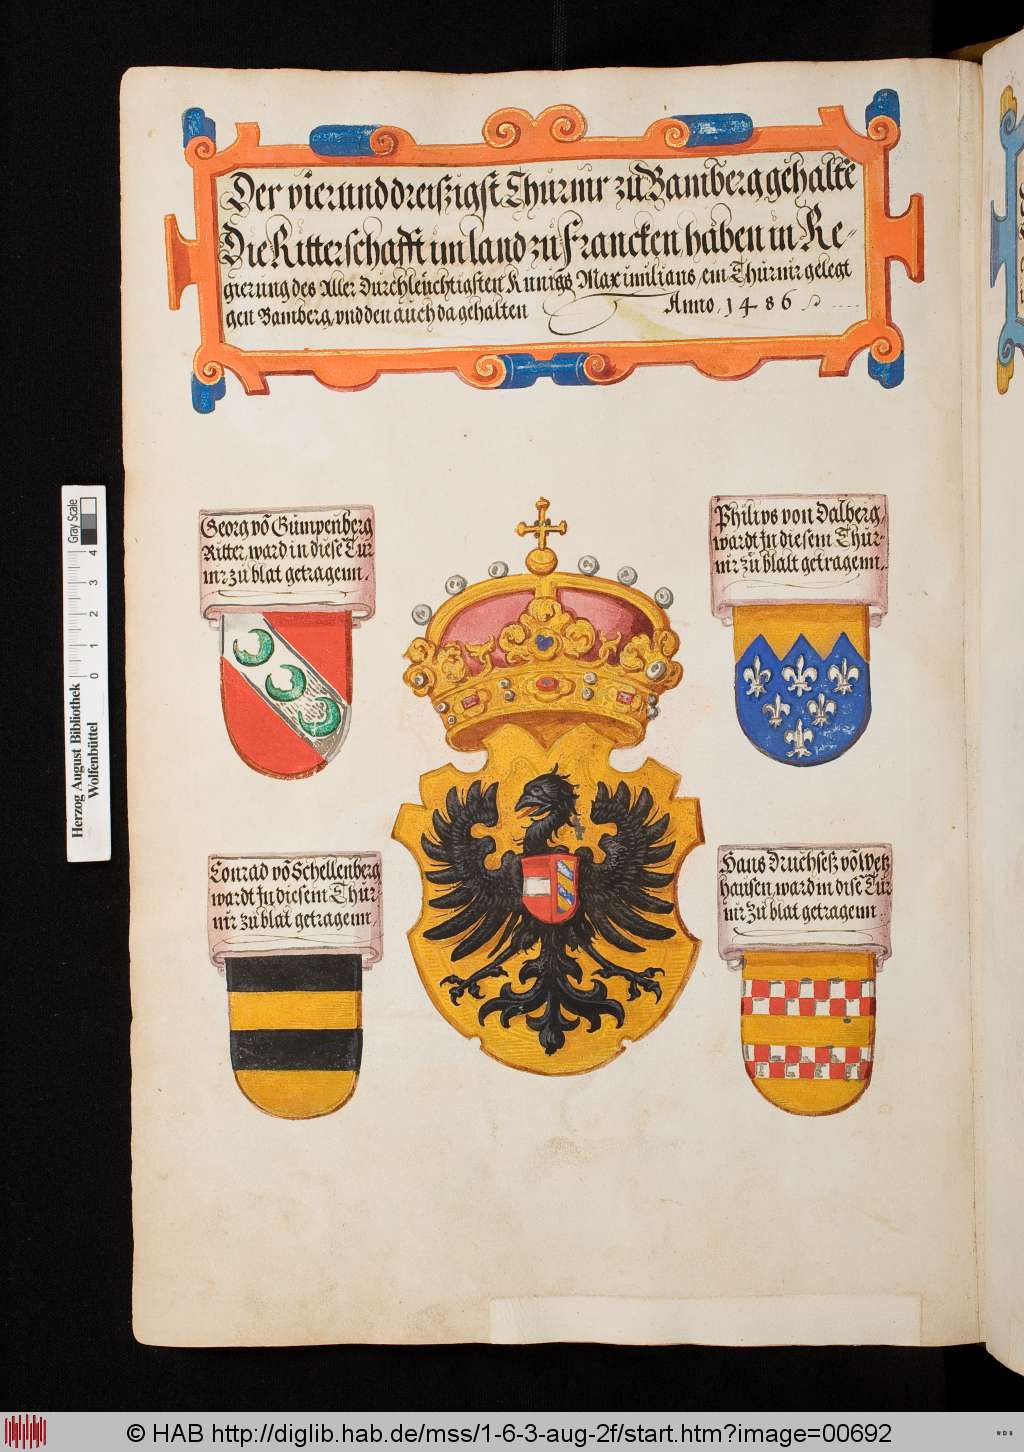 Der vierunddreiszigst Thurnir zu Bamberg gehaltē
Die Ritterschafft im land zu Francken, haben in Re-
gierung des Aller Durchleuchtigsten Kunigs Maximilians, ein Thurnir gelegt
gen Bamberg, vnd den auch da gehalten Anno, 1486
Georg vō Gumpenberg
Ritter, ward in diese Tur
nir zu blat getragenn.
Philips von Dalberg,
wardt Jn diesem Thur-
nir zu blalt getragenn.
Conrad vō Schellenberg
wardt Jn diesem Thur
nir zu blat getragenn
Hans Druchsesz vō Wetz
hausen, ward in dise Tur
nir Zu blat getragenn.
Herzog August Bibliothek
Wolfenbüttel
0 1 2 3 4
Gray Scale
© HAB http://diglib.hab.de/mss/1-6-3-aug-2f/start.htm?image=00692